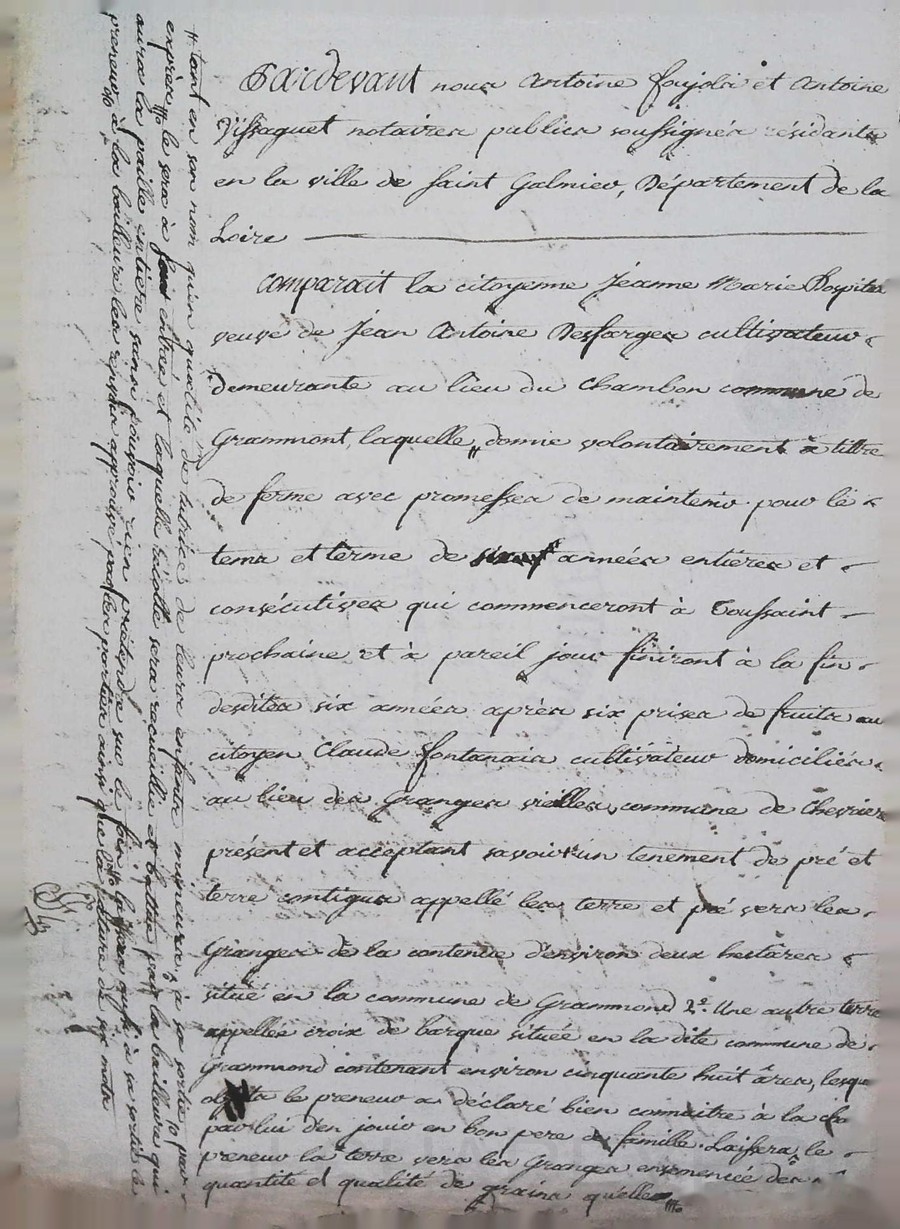 Pardevant nous Antoine foujols et Antoine
Dissaguet notaires publics soussignés résidants
en la ville de saint Galmier, Département de la
Loire
Comparait la citoyenne Jeanne Marie
veuve de Jean Antoine Desfarges cultivateur
demeurante au lieu du Chambon commune de
Grammont, laquelle, donne volontairement à tittre
de ferme avec promesses de maintenir pour le
tems et terme de années entieres et
consécutives qui commenceront à Toussaint
prochaine et à pareil jour finiront à la fin
desdites six années après six prises de fruits au
citoyen Claude fontanais cultivateur domiciliés
au lieu des Granges vieilles, commune de Chevrier
présent et acceptant savoir un tenement de pré et
terre contigus appellé les terre et pré vers les
Granges de la contenue d'environ deux hectares
situé en la commune de Grammond 2º. Une autre terre
appellée croix de barque située en la dite commune de
Grammond contenant environ cinquante huit ares, lesque
objets le preneur a déclaré bien connaitre à la cha
par lui d'en jouir en bon pere de famille. Laissera le
preneur la terre vers les Granges ensemencée des
quantité et qualité de grains qu'elle
# tant en son nom qu'en qualité de tutrice de leurs enfants mineurs, à sa sortie par
exprès le sera à entrée et laquelle récolte sera recueillie et battue par la bailleure qui
aura la paille entiere sans pouvoir rien prétendre sur le foin à sa sortie le
preneur à la bailleure les approuvé par les parties ainsi que la rature de six mots